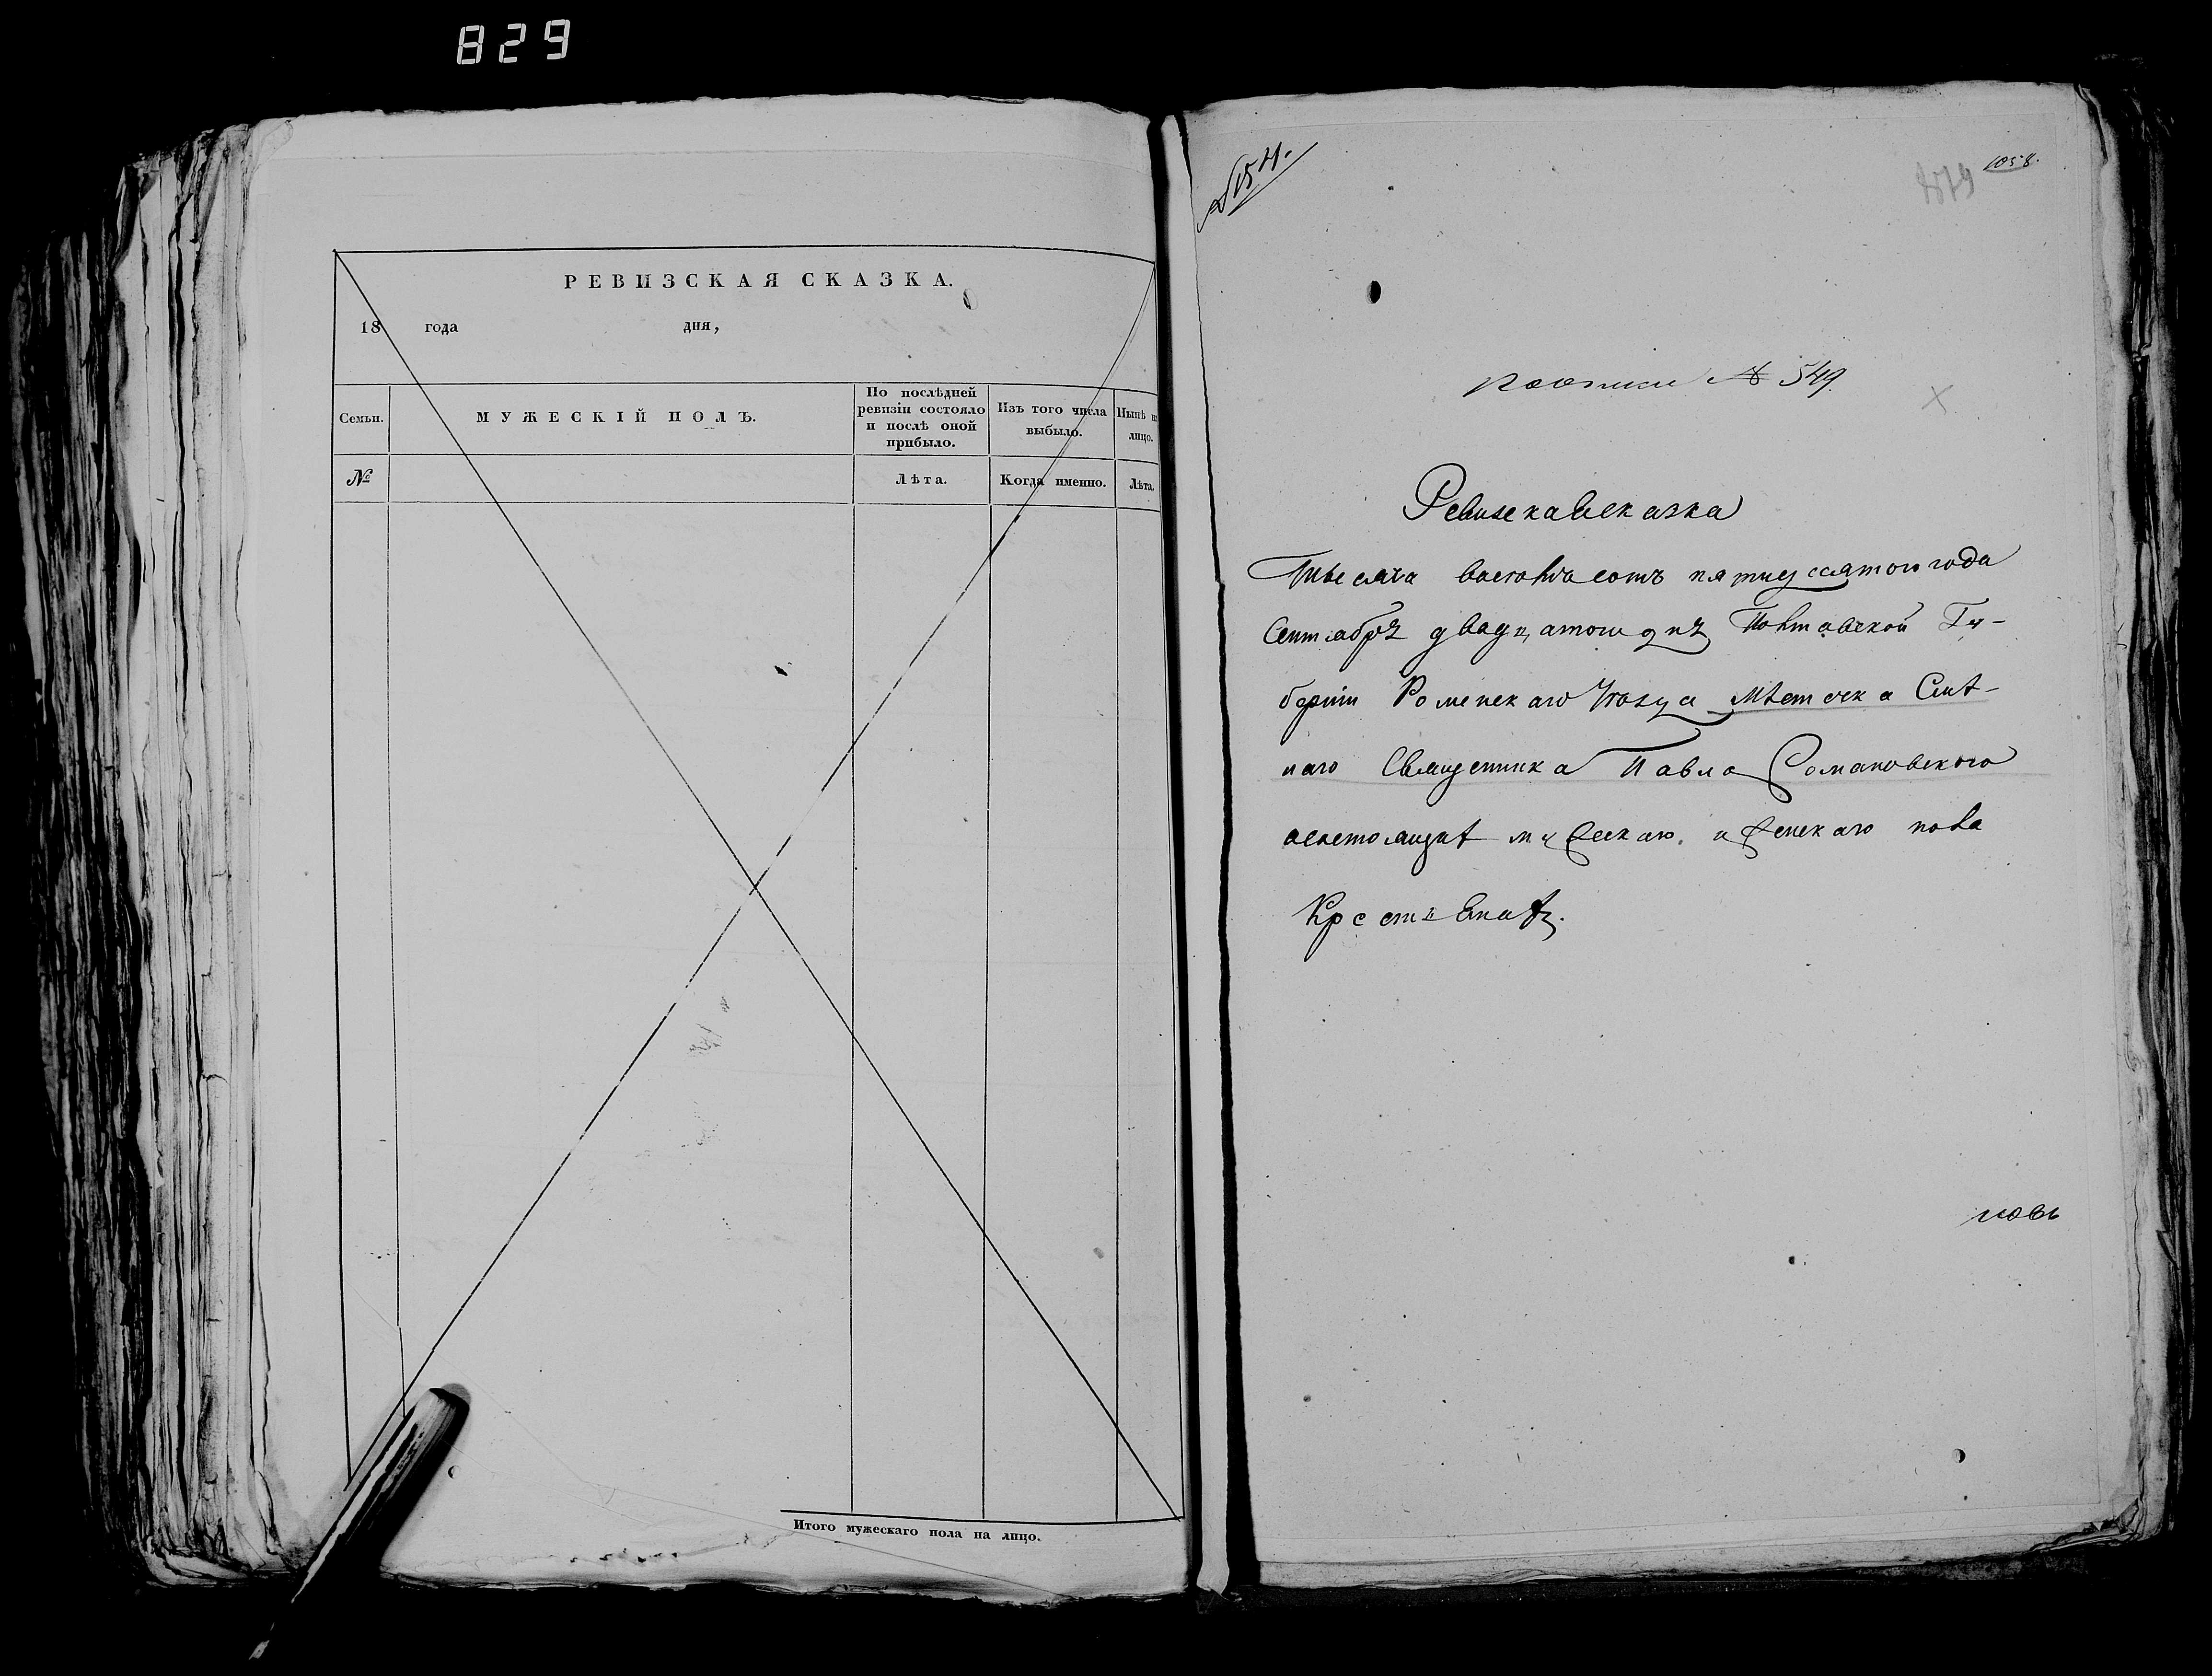 829
РЕВИЗСКАЯ СКАЗКА.
18 года дня,
Семьи.
МУЖЕСКІЙ ПОЛЪ.
По послѣдней
ревизіи состояло
и послѣ оной
прибыло.
Изъ того числа
выбыло.
Нынѣ н
лицо.
№
Лѣта.
Когда именно.
Лѣта.
Итого мужескаго пола на лицо.
1058.
№ 549.
Ревизская сказка
Тысяча восемьсотъ пятидесятого года
Сентября двадцатого дня Полтавской Гу-
берніи Роменскаго уѣзда мѣстечка Смѣ-
лаго Священника Павла Романовского
о состоящихъ мужескаго и женскаго пола
Крестьянахъ.